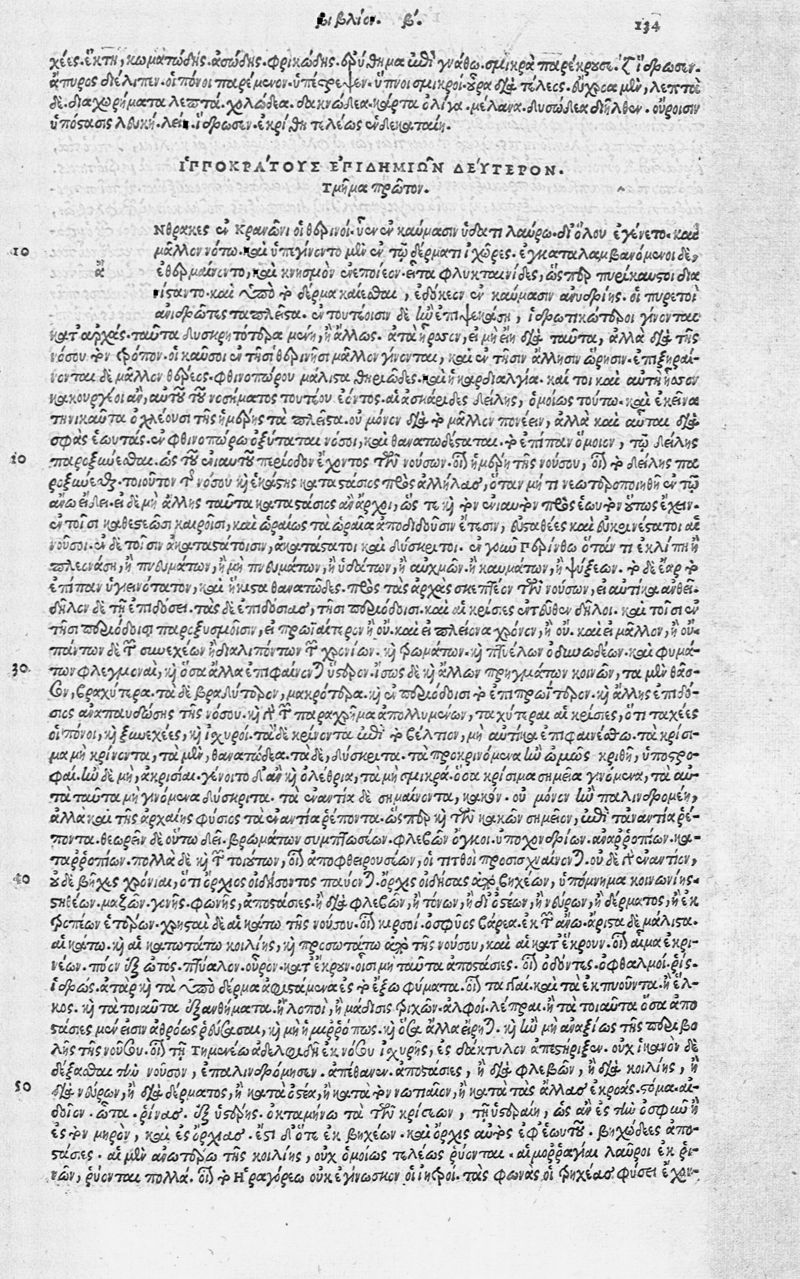 βιβλίον. β΄. 134
χέες. ἕκτῃ, κωματώδης. ἀσώδης. φρικώδης. ἐρύθημα ἐπὶ γνάθῳ. σμικρὰ παρέκρουσε. ζ ἵδρωσεν.
ἄπυρος διέλιπεν. οἱ πόνοι παρέμενον. ὑπέστρεψεν. ὕπνοι σμικροί. οὖρα διὰ τέλεος. εὔχροα μὲν, λεπτὰ
δέ. διαχωρήματα λεπτά. χολώδεα. δακνώδεα. κάρτα ὀλίγα. μέλανα. δυσώδεα διῆλθεν. οὔροισιν
ὑπόστασις λευκὴ. λείη. ἵδρωσεν. ἐκρίθη τελέως ἑνδεκαταίη.
ἹΠΠΟΚΡΑΤΟΥΣ ἘΠΙΔΗΜΙΩΝ ΔΕΥΤΕΡΟΝ.
Τμῆμα πρῶτον.
Νθρακες ἐν Κρανῶνι οἱ θερινοί. ὗεν ἐν καύμασιν ὕδατι λαύρῳ. δι' ὅλου ἐγένετο. καὶ
10 μᾶλλον νότῳ. καὶ ὑπεγίνοντο μὲν ἐν τῷ δέρματι ἰχῶρες. ἐγκαταλαμβανόμενοι δὲ,
ἄ ἐθερμαίνοντο, καὶ κνησμὸν ἐνεποίεον. εἶτα φλυκταινίδες, ὥσπερ πυρίκαυστοι δια
νίσταντο. καὶ ὑπὸ τὸ δέρμα καίεσθαι, ἐδόκεον ἐν καύμασιν ἀνυδρίης. οἱ πυρετοὶ
ἀνιδρῶτες τα πλεῖστα. ἐν τουτέοισιν δὲ ἢν ἐπιψεκάσῃ, ἱδρωτικώτεροι γίνονται
κατ' ἀρχάς. ταῦτα δυσκριτότερα μένῃ, ἢ ἄλλως. ἀτὰρ ἧσσον, εἰ μὴ εἴη διὰ ταῦτα, ἀλλὰ διὰ τῆς
νόσου τὸν τρόπον. οἱ καῦσοι ἐν τῇσι θερινῇσι μᾶλλον γίνονται, καὶ ἐν τῇσιν ἄλλησιν ὥρῃσιν. ἐπιξηραί-
νονται δὲ μᾶλλον θέρεος. φθινοπώρου μάλιστα θηριῶδες. καὶ ἡ καρδιαλγία. καί τοι καὶ αὐτὴ ἧσσον
κακουργέοι ἂν, αὐτοῦ τοῦ νοσήματος τουτέου ἐόντος. αἱ ἀσκαρίδες δείλης, ὁμοίως τούτῳ. καὶ ἐκεῖνα
τηνικαῦτα ὀχλέουσι τῆς ἡμέρης τὰ πλεῖστα. οὐ μόνον διὰ τὸ μᾶλλον πονέειν, ἀλλὰ καὶ αὗται διὰ
σφᾶς ἑωυτάς. ἐν φθινοπώρῳ ὀξύταται νόσοι, καὶ θανατωδέσταται. τὸ ἐπίπαν ὅμοιον, τῷ δείλης
20 παροξύνεσθαι. ὡς τοῦ ἐνιαυτοῦ περίοδον ἔχοντος τῶν νούσων. οἷον ἡ ἡμέρη τῆς νούσου, οἷον τὸ δείλης πα
ροξύνεσθαι. τοιοῦτον τῆς νόσου καὶ ἑκάστης καταστάσιος πρὸς ἀλλήλας, ὅταν μή τι νεωτεροποιηθῇ ἐν τῷ
ἄνω εἴδει. εἰ δὲ μὴ ἄλλης ταῦτα καταστάσιος ἂν ἄρχοι, ὥς τε καὶ τὸν ἐνιαυτὸν πρὸς ἑωυτὸν οὕτως ἔχειν.
ἐν τοῖσι καθεστεῶσι καιροῖσι, καὶ ὡραίως τὰ ὡραῖα ἀποδιδοῦσιν ἔτεσιν, εὐσταθέες καὶ εὐκρινέσταται αἱ
νοῦσοι. ἐν δὲ τοῖσιν ἀκαταστάτοισιν, ἀκατάστατοι καὶ δύσκριτοι. ἐν γοῦν Περίνθῳ ὅταν τι ἐκλίπῃ ἢ
πλεονάσῃ, ἢ πνευμάτων, ἢ μὴ πνευμάτων, ἢ ὑδάτων, ἢ αὐχμῶν. ἢ καυμάτων, ἢ ψύξεων. τὸ δὲ ἔαρ τὸ
ἐπίπαν ὑγιεινότατον, καὶ ἥκιστα θανατῶδες. πρὸς τὰς ἀρχὰς σκεπτέον τῶν νούσων, εἰ αὐτίκα ἀνθεῖ.
δῆλον δὲ τῇ ἐπιδόσει. τὰς δὲ ἐπιδόσιας, τῇσι περιόδοισι. καὶ αἱ κρίσιες ἐντεῦθεν δῆλοι. καὶ τοῖσι ἐν
τῇσι περιόδοισι παροξυσμοῖσιν, εἰ πρωϊαίτερον ἢ οὔ. καὶ εἰ πλείονα χρόνον, ἢ οὔ. καὶ εἰ μᾶλλον, ἢ οὔ.
πάντων δὲ τῶν συνεχέων ἢ διαλιπόντων τῶν χρονίων. καὶ τρωμάτων. καὶ πτυέλων ὀδυνωδέων. καὶ φυμά-
30 των φλεγμοναὶ, καὶ ὅσα ἄλλα ἐπιφαίνονται ὕστερον. ἴσως δὲ καὶ ἄλλων πρηγμάτων κοινῶν, τὰ μὲν θᾶσ-
σον, βραχύτερα. τὰ δὲ βραδύτερον, μακρότερα. καὶ ἐν περιόδοισι τὸ ἐπιπρωΐτερον. καὶ ἄλλης ἐπιδό-
σιος ἀναπαυδώσης τῆς νόσου. καὶ γὰρ τῶν παραχρῆμα ἀπολλυμένων, ταχύτεραι αἱ κρίσιες, ὅτι ταχέες
οἱ πόνοι, καὶ ξυνεχέες, καὶ ἰσχυροί. τὰ δὲ κρίνοντα ἐπὶ τὸ βέλτιον, μὴ αὐτίκα ἐπιφαινέσθω. τὰ κρίσι-
μα μὴ κρίνοντα, τὰ μὲν, θανατώδεα. τὰ δὲ, δύσκριτα. τὰ προκρινόμενα ἢν ὠμῶς κριθῇ, ὑποστρο-
φαί. ἢν δὲ μὴ, ἀκρισίαι. γένοιτο δ' ἂν καὶ ὀλέθρια, τὰ μὴ σμικρά. ὅσα κρίσιμα σημεῖα γινόμενα, τὰ αὐ-
τὰ ταῦτα μὴ γινόμενα δύσκριτα. τὰ ἐναντία δὲ σημαίνοντα, κακόν. οὐ μόνον ἢν παλινδρομέῃ,
ἀλλὰ καὶ τῆς ἀρχαίης φύσιος τὰ ἐναντία ῥέποντα. ὥσπερ καὶ τῶν κακῶν σημεῖον, ἐπὶ τἀναντία ῥέ-
ποντα. θεωρεῖν δὲ οὕτω δεῖ. βρωμάτων συμπτωσέων. φλεβῶν ὄγκοι. ὑποχονδρίων. ἀναρροπίων. κα-
ταρροπίων. πολλὰ δὲ καὶ τῶν τοιούτων, οἷον ἀποφθειρουσέων, οἱ τιτθοὶ προσισχναίνονται. οὐ δὲ γὰρ ἐναντίον,
40 οὐδὲ βῆχες χρόνιαι, ὅτι ὄρχιος οἰδήσαντος παύονται. ὄρχις οἰδήσας ἀπὸ βηχέων, ὑπόμνημα κοινωνίης.
στηθέων. μαζῶν. γονῆς. φωνῆς, ἀποστάσιες. ἢ διὰ φλεβῶν, ἢ τόνων, ἢ δι' ὀστέων, ἢ νεύρων, ἢ δέρματος, ἢ ἐκ
τροπέων ἑτέρων. χρησταὶ δὲ αἱ κάτω τῆς νούσου. οἷον κιρσοί. ὀσφῦος βάρεα. ἐκ τῶν ἄνω. ἄρισται δὲ μάλιστα.
αἱ κάτω. καὶ αἱ κατωτάτω κοιλίης, καὶ προσωτάτω ἀπὸ τῆς νούσου, καὶ αἱ κατ' ἔκρουν. οἷον αἷμα ἐκ ρι-
νέων. πύον ἐξ ὠτὸς. πτύαλον. οὖρον. κατ' ἔκρουν. οἷσι μὴ ταῦτα ἀποστάσιες. οἷον ὀδόντες. ὀφθαλμοί. ῥίς.
ἱδρώς. ἀτὰρ καὶ τὰ ὑπὸ δέρμα ἀφιστάμενα ἐς τὸ ἔξω φύματα. οἷον ταγγαί. καὶ τὰ ἐκπυοῦντα. ἢ ἕλ-
κος. καὶ τὰ τοιαῦτα ἐξανθήματα. ἢ λοποὶ, ἢ μάδισις τριχῶν. ἀλφοί. λέπραι. ἢ τὰ τοιαῦτα ὅσα ἀπο
στάσιες μέν εἰσιν ἀθρόως ῥεύσασαι, καὶ μὴ ἡμιρρόπως. καὶ ὅσα ἄλλα εἴρηται. καὶ ἢν μὴ ἀναξίως τῆς περιβο-
λῆς τῆς νούσου. οἷον τῇ Τημενέω ἀδελφιδῇ ἐκ νούσου ἰσχυρῆς, ἐς δάκτυλον ἀπεστήριξεν. οὐχ ἱκανὸν δὲ
δέξασθαι τὴν νοῦσον, ἐπαλινδρόμησεν. ἀπέθανεν. ἀποστάσιες, ἢ διὰ φλεβῶν, ἢ διὰ κοιλίης, ἢ
50 διὰ νεύρων, ἢ διὰ δέρματος, ἢ κατὰ ὀστέα, ἢ κατὰ τὸν νωτιαῖον, ἢ κατὰ τὰς ἄλλας ἐκροάς. στόμα. αἰ-
δοῖον. ὦτα. ῥῖνας. ἐξ ὑστέρης. ὀκταμήνῳ τὰ τῶν κρίσεων, τῇ ὑστεραίῃ, ὡς ἂν ἐς τὴν ὀσφὺν ἢ
ἐς τὸν μηρὸν, καὶ ἐς ὄρχιας. ἔστι δ' ὅτε ἐκ βηχέων. καὶ ὄρχις αὐτὸς ἐφ' ἑωυτοῦ. βηχώδεες ἀπο-
στάσιες. αἱ μὲν ἀνωτέρω τῆς κοιλίης, οὐχ ὁμοίως τελέως ῥύονται. αἱμορραγίαι λαῦροι ἐκ ῥι-
νῶν, ῥύονται πολλά. οἷον τὸ Ἡραγόρεω οὐκ ἐγίνωσκον οἱ ἰητροί. τὰς φωνὰς οἱ τρηχέας φύσει ἔχον-